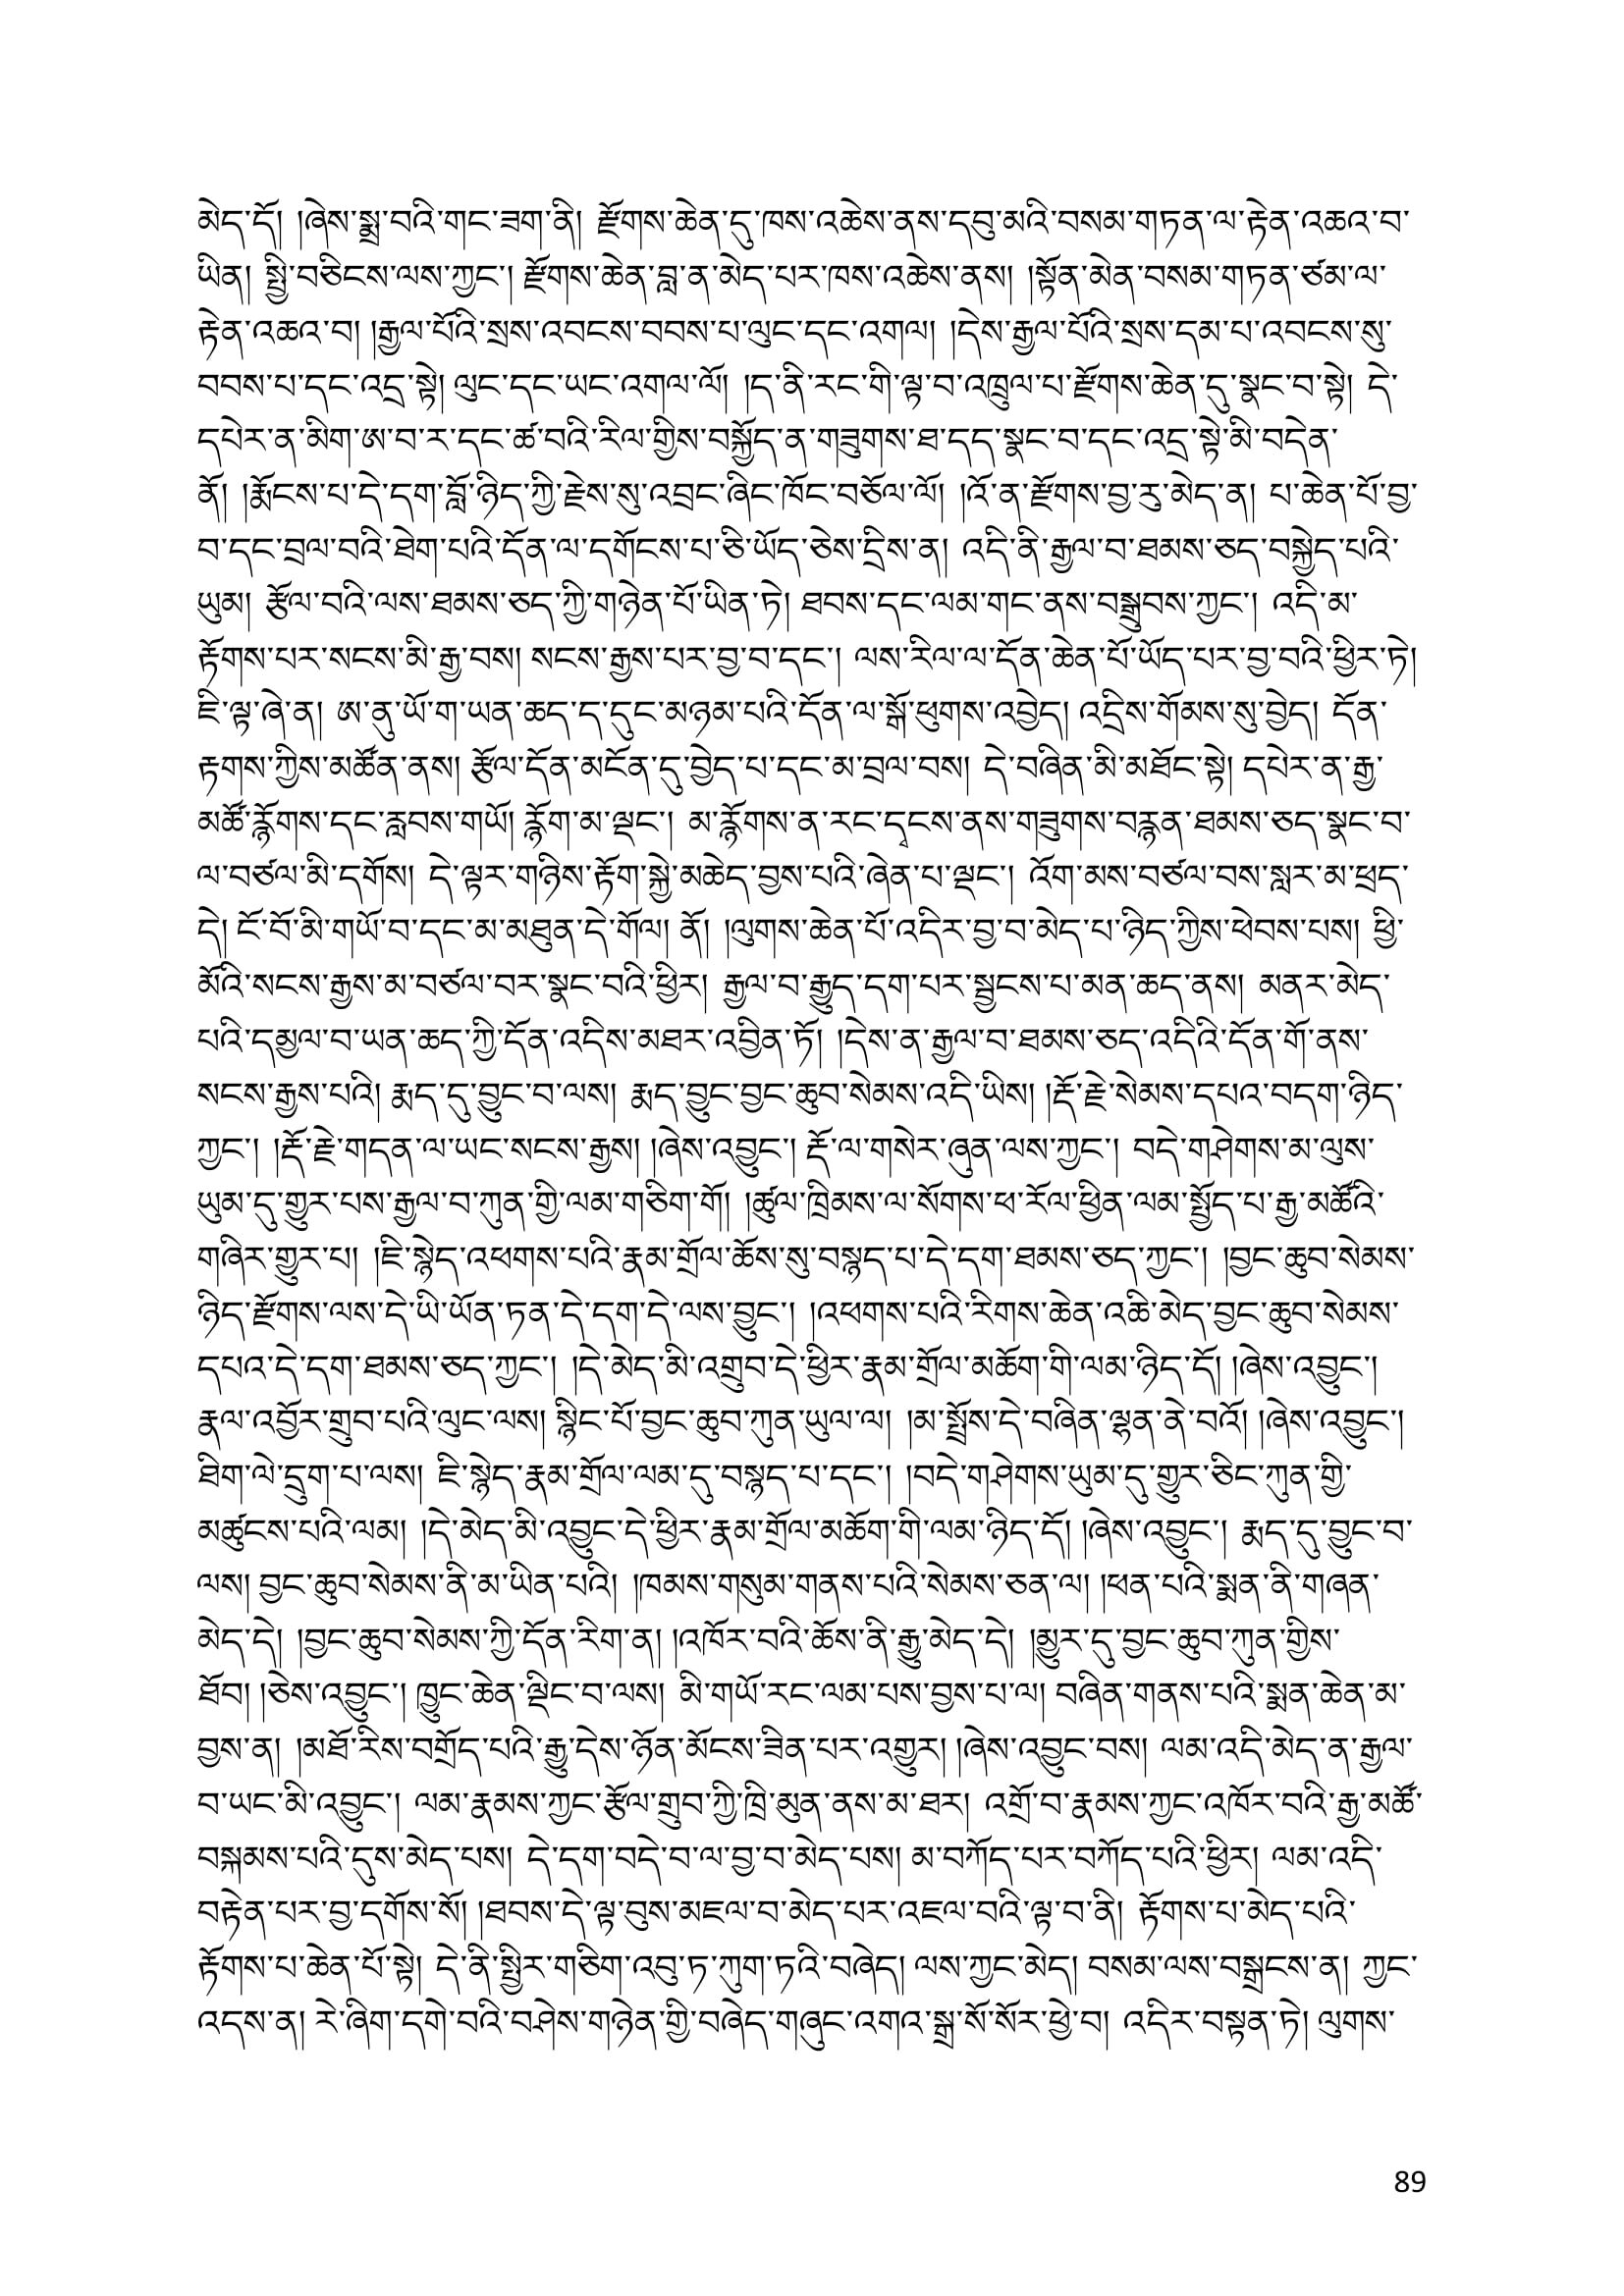 མེད་དོ། །ཞེས་སྨྲ་བའི་གང་ཟག་ནི། རྫོགས་ཆེན་དུ་ཁས་འཆེས་ནས་དབུ་མའི་བསམ་གཏན་ལ་རྟེན་འཆའ་བ་
ཡིན། སྤྱི་བཅིངས་ལས་ཀྱང་། རྫོགས་ཆེན་བླ་ན་མེད་པར་ཁས་འཆེས་ནས། །སྟོན་མེན་བསམ་གཏན་ཙམ་ལ་
རྟེན་འཆའ་བ། །རྒྱལ་པོའི་སྲས་འབངས་བབས་པ་ལུང་དང་འགལ། །དེས་རྒྱལ་པོའི་སྲས་དམ་པ་འབངས་སུ་
བབས་པ་དང་འདྲ་སྟེ། ལུང་དང་ཡང་འགལ་ལོ། །ད་ནི་རང་གི་ལྟ་བ་འཁྲུལ་པ་རྫོགས་ཆེན་དུ་སྣང་བ་སྟེ། དེ་
དཔེར་ན་མིག་ཨ་བ་ར་དང་ཚ་བའི་རིལ་གྱིས་བསྐྱོད་ན་གཟུགས་ཐ་དད་སྣང་བ་དང་འདྲ་སྟེ་མི་བདེན་
ནོ། །རྨོངས་པ་དེ་དག་བློ་ཉིད་ཀྱི་རྗེས་སུ་འབྲང་ཞིང་ཁོང་བཅོལ་ལོ། །འོ་ན་རྫོགས་བྱ་རུ་མེད་ན། པ་ཆེན་པོ་བྱ་
བ་དང་བྲལ་བའི་ཐེག་པའི་དོན་ལ་དགོངས་པ་ཅི་ཡོད་ཅེས་དྲིས་ན། འདི་ནི་རྒྱལ་བ་ཐམས་ཅད་བསྐྱེད་པའི་
ཡུམ། རྩོལ་བའི་ལས་ཐམས་ཅད་ཀྱི་གཉེན་པོ་ཡིན་ཏེ། ཐབས་དང་ལམ་གང་ནས་བསྒྲུབས་ཀྱང་། འདི་མ་
རྟོགས་པར་སངས་མི་རྒྱ་བས། སངས་རྒྱས་པར་བྱ་བ་དང་། ལས་རིལ་ལ་དོན་ཆེན་པོ་ཡོད་པར་བྱ་བའི་ཕྱིར་ཏེ།
ཇི་ལྟ་ཞེ་ན། ཨ་ནུ་ཡོ་ག་ཡན་ཆད་ད་དུང་མཉམ་པའི་དོན་ལ་སྒོ་ཕུགས་འབྱེད། འདྲིས་གོམས་སུ་བྱེད། དོན་
རྟགས་ཀྱིས་མཚོན་ནས། རྩོལ་དོན་མངོན་དུ་བྱེད་པ་དང་མ་བྲལ་བས། དེ་བཞིན་མི་མཐོང་སྟེ། དཔེར་ན་རྒྱ་
མཚོ་རྙོགས་དང་རླབས་གཡོ། རྙོག་མ་ལྡང་། མ་རྙོགས་ན་རང་དྭངས་ནས་གཟུགས་བརྙན་ཐམས་ཅད་སྣང་བ་
ལ་བཙལ་མི་དགོས། དེ་ལྟར་གཉིས་རྟོག་སྐྱེ་མཆེད་བྱས་པའི་ཞེན་པ་ལྡང་། འོག་མས་བཙལ་བས་སླར་མ་ཕྲད་
དེ། ངོ་བོ་མི་གཡོ་བ་དང་མ་མཐུན་དེ་གོལ། ནོ། །ལུགས་ཆེན་པོ་འདིར་བྱ་བ་མེད་པ་ཉིད་ཀྱིས་ཕེབས་པས། ཕྱི་
མོའི་སངས་རྒྱས་མ་བཙལ་བར་སྣང་བའི་ཕྱིར། རྒྱལ་བ་རྒྱུད་དག་པར་སྦྱངས་པ་མན་ཆད་ནས། མནར་མེད་
པའི་དམྱལ་བ་ཡན་ཆད་ཀྱི་དོན་འདིས་མཐར་འབྱིན་ཏོ། །དེས་ན་རྒྱལ་བ་ཐམས་ཅད་འདིའི་དོན་གོ་ནས་
སངས་རྒྱས་པའི། རྨད་དུ་བྱུང་བ་ལས། རྨད་བྱུང་བྱང་ཆུབ་སེམས་འདི་ཡིས། །རྡོ་རྗེ་སེམས་དཔའ་བདག་ཉིད་
ཀྱང་། །རྡོ་རྗེ་གདན་ལ་ཡང་སངས་རྒྱས། །ཞེས་འབྱུང་། རྡོ་ལ་གསེར་ཞུན་ལས་ཀྱང་། བདེ་གཤེགས་མ་ལུས་
ཡུམ་དུ་གྱུར་པས་རྒྱལ་བ་ཀུན་གྱི་ལམ་གཅིག་གོ། །ཚུལ་ཁྲིམས་ལ་སོགས་ཕ་རོལ་ཕྱིན་ལམ་སྤྱོད་པ་རྒྱ་མཚོའི་
གཞིར་གྱུར་པ། །ཇི་སྙེད་འཕགས་པའི་རྣམ་གྲོལ་ཆོས་སུ་བསྙད་པ་དེ་དག་ཐམས་ཅད་ཀྱང་། །བྱང་ཆུབ་སེམས་
ཉིད་རྫོགས་ལས་དེ་ཡི་ཡོན་ཏན་དེ་དག་དེ་ལས་བྱུང་། །འཕགས་པའི་རིགས་ཆེན་འཆི་མེད་བྱང་ཆུབ་སེམས་
དཔའ་དེ་དག་ཐམས་ཅད་ཀྱང་། །དེ་མེད་མི་འགྲུབ་དེ་ཕྱིར་རྣམ་གྲོལ་མཆོག་གི་ལམ་ཉིད་དོ། །ཞེས་འབྱུང་།
རྣལ་འབྱོར་གྲུབ་པའི་ལུང་ལས། སྙིང་པོ་བྱང་ཆུབ་ཀུན་ཡུལ་ལ། །མ་སྤྲོས་དེ་བཞིན་ལྷན་ནེ་བའོ། །ཞེས་འབྱུང་།
ཐིག་ལེ་དྲུག་པ་ལས། ཇི་སྙེད་རྣམ་གྲོལ་ལམ་དུ་བསྙད་པ་དང་། །བདེ་གཤེགས་ཡུམ་དུ་གྱུར་ཅིང་ཀུན་གྱི་
མཚུངས་པའི་ལམ། །དེ་མེད་མི་འབྱུང་དེ་ཕྱིར་རྣམ་གྲོལ་མཆོག་གི་ལམ་ཉིད་དོ། །ཞེས་འབྱུང་། རྨད་དུ་བྱུང་བ་
ལས། བྱང་ཆུབ་སེམས་ནི་མ་ཡིན་པའི། །ཁམས་གསུམ་གནས་པའི་སེམས་ཅན་ལ། །ཕན་པའི་སྨན་ནི་གཞན་
མེད་དེ། །བྱང་ཆུབ་སེམས་ཀྱི་དོན་རིག་ན། །འཁོར་བའི་ཆོས་ནི་རྒྱུ་མེད་དེ། །མྱུར་དུ་བྱང་ཆུབ་ཀུན་གྱིས་
ཐོབ། །ཅེས་འབྱུང་། ཁྱུང་ཆེན་ལྡིང་བ་ལས། མི་གཡོ་རང་ལམ་པས་བྱས་པ་ལ། བཞིན་གནས་པའི་སྨན་ཆེན་མ་
བྱས་ན། །མཐོ་རིས་བགྲོད་པའི་རྒྱུ་དེས་ཉོན་མོངས་ཟིན་པར་འགྱུར། །ཞེས་འབྱུང་བས། ལམ་འདི་མེད་ན་རྒྱལ་
བ་ཡང་མི་འབྱུང་། ལམ་རྣམས་ཀྱང་རྩོལ་གྲུབ་ཀྱི་ཁྲི་མུན་ནས་མ་ཐར། འགྲོ་བ་རྣམས་ཀྱང་འཁོར་བའི་རྒྱ་མཚོ་
བསྐམས་པའི་དུས་མེད་པས། དེ་དག་བདེ་བ་ལ་བྱ་བ་མེད་པས། མ་བཀོད་པར་བཀོད་པའི་ཕྱིར། ལམ་འདི་
བརྟེན་པར་བྱ་དགོས་སོ། །ཐབས་དེ་ལྟ་བུས་མཇལ་བ་མེད་པར་འཇལ་བའི་ལྟ་བ་ནི། རྟོགས་པ་མེད་པའི་
རྟོགས་པ་ཆེན་པོ་སྟེ། དེ་ནི་སྤྱིར་གཅིག་འབུ་ཏ་ཀུག་ཏའི་བཞེད། ལས་ཀྱང་མེད། བསམ་ལས་བསྒྲངས་ན། ཀྱང་
འདས་ན། རེ་ཞིག་དགེ་བའི་བཤེས་གཉེན་གྱི་བཞེད་གཞུང་འགའ་སྒྲ་སོ་སོར་ཕྱེ་བ། འདིར་བསྟན་ཏེ། ལུགས་
89